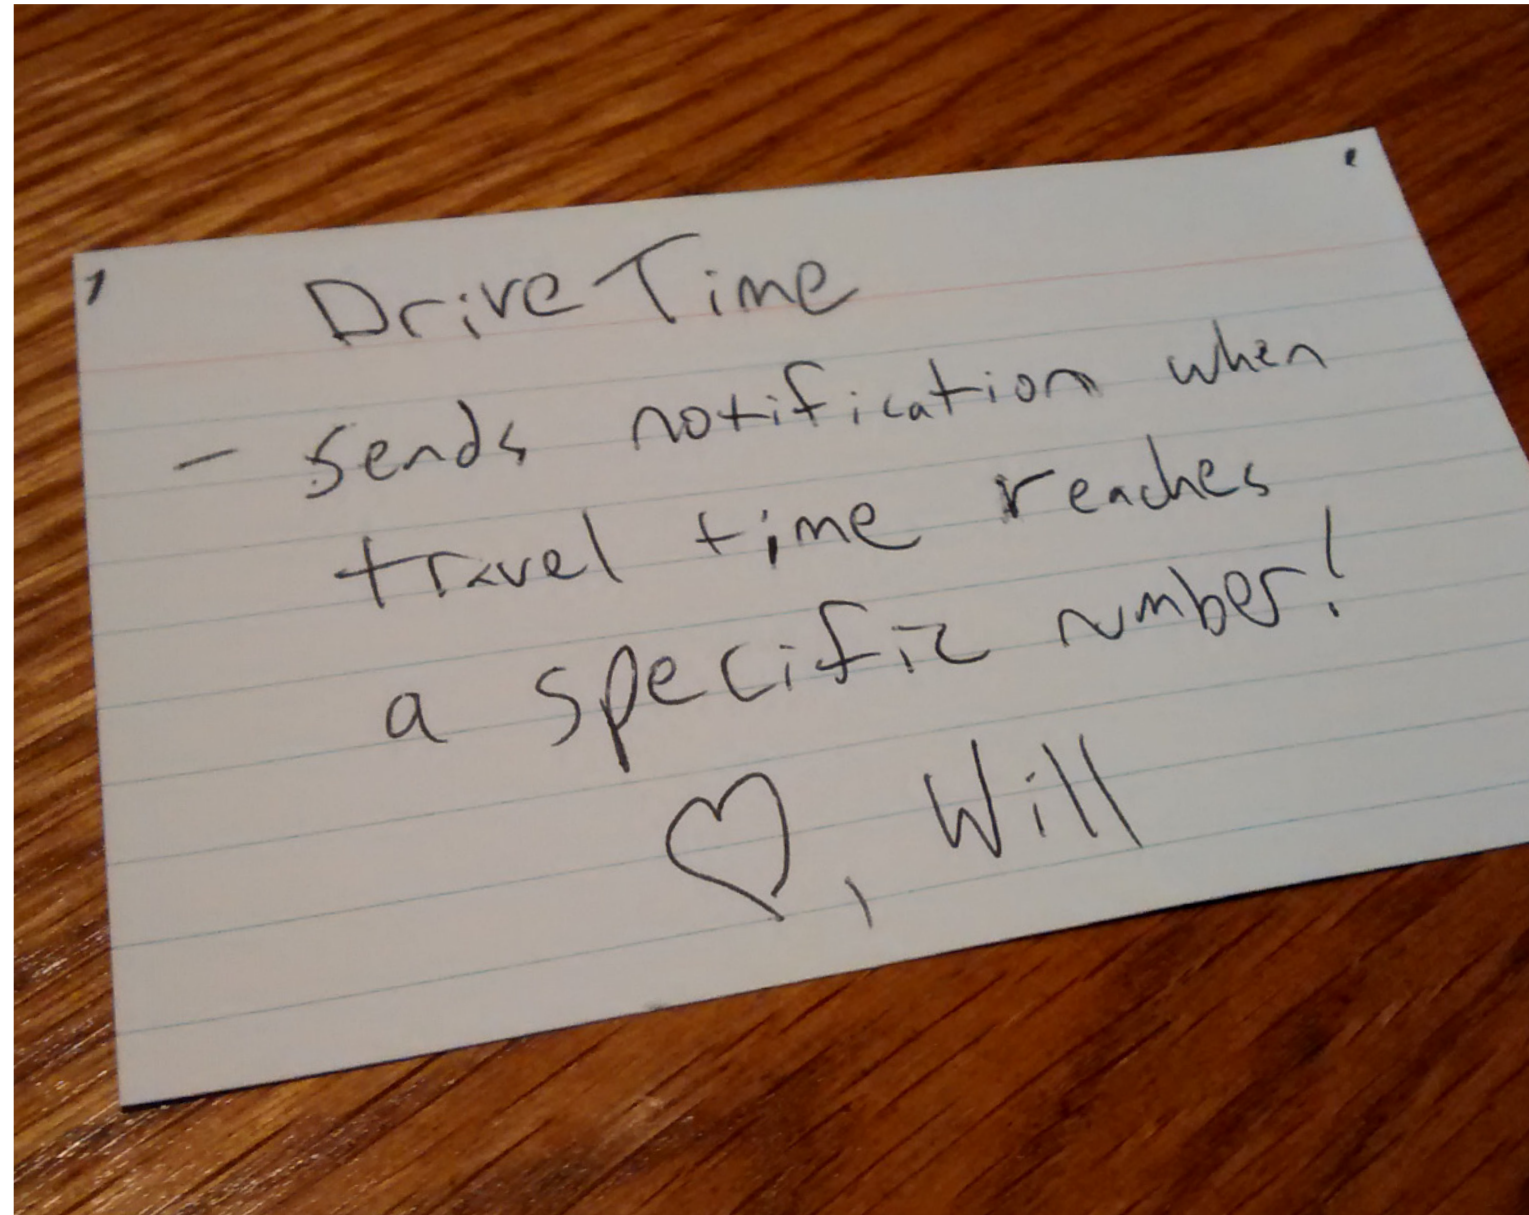 Drive Time
- Sends notification when
travel time reaches
a specific number!
♡, Will